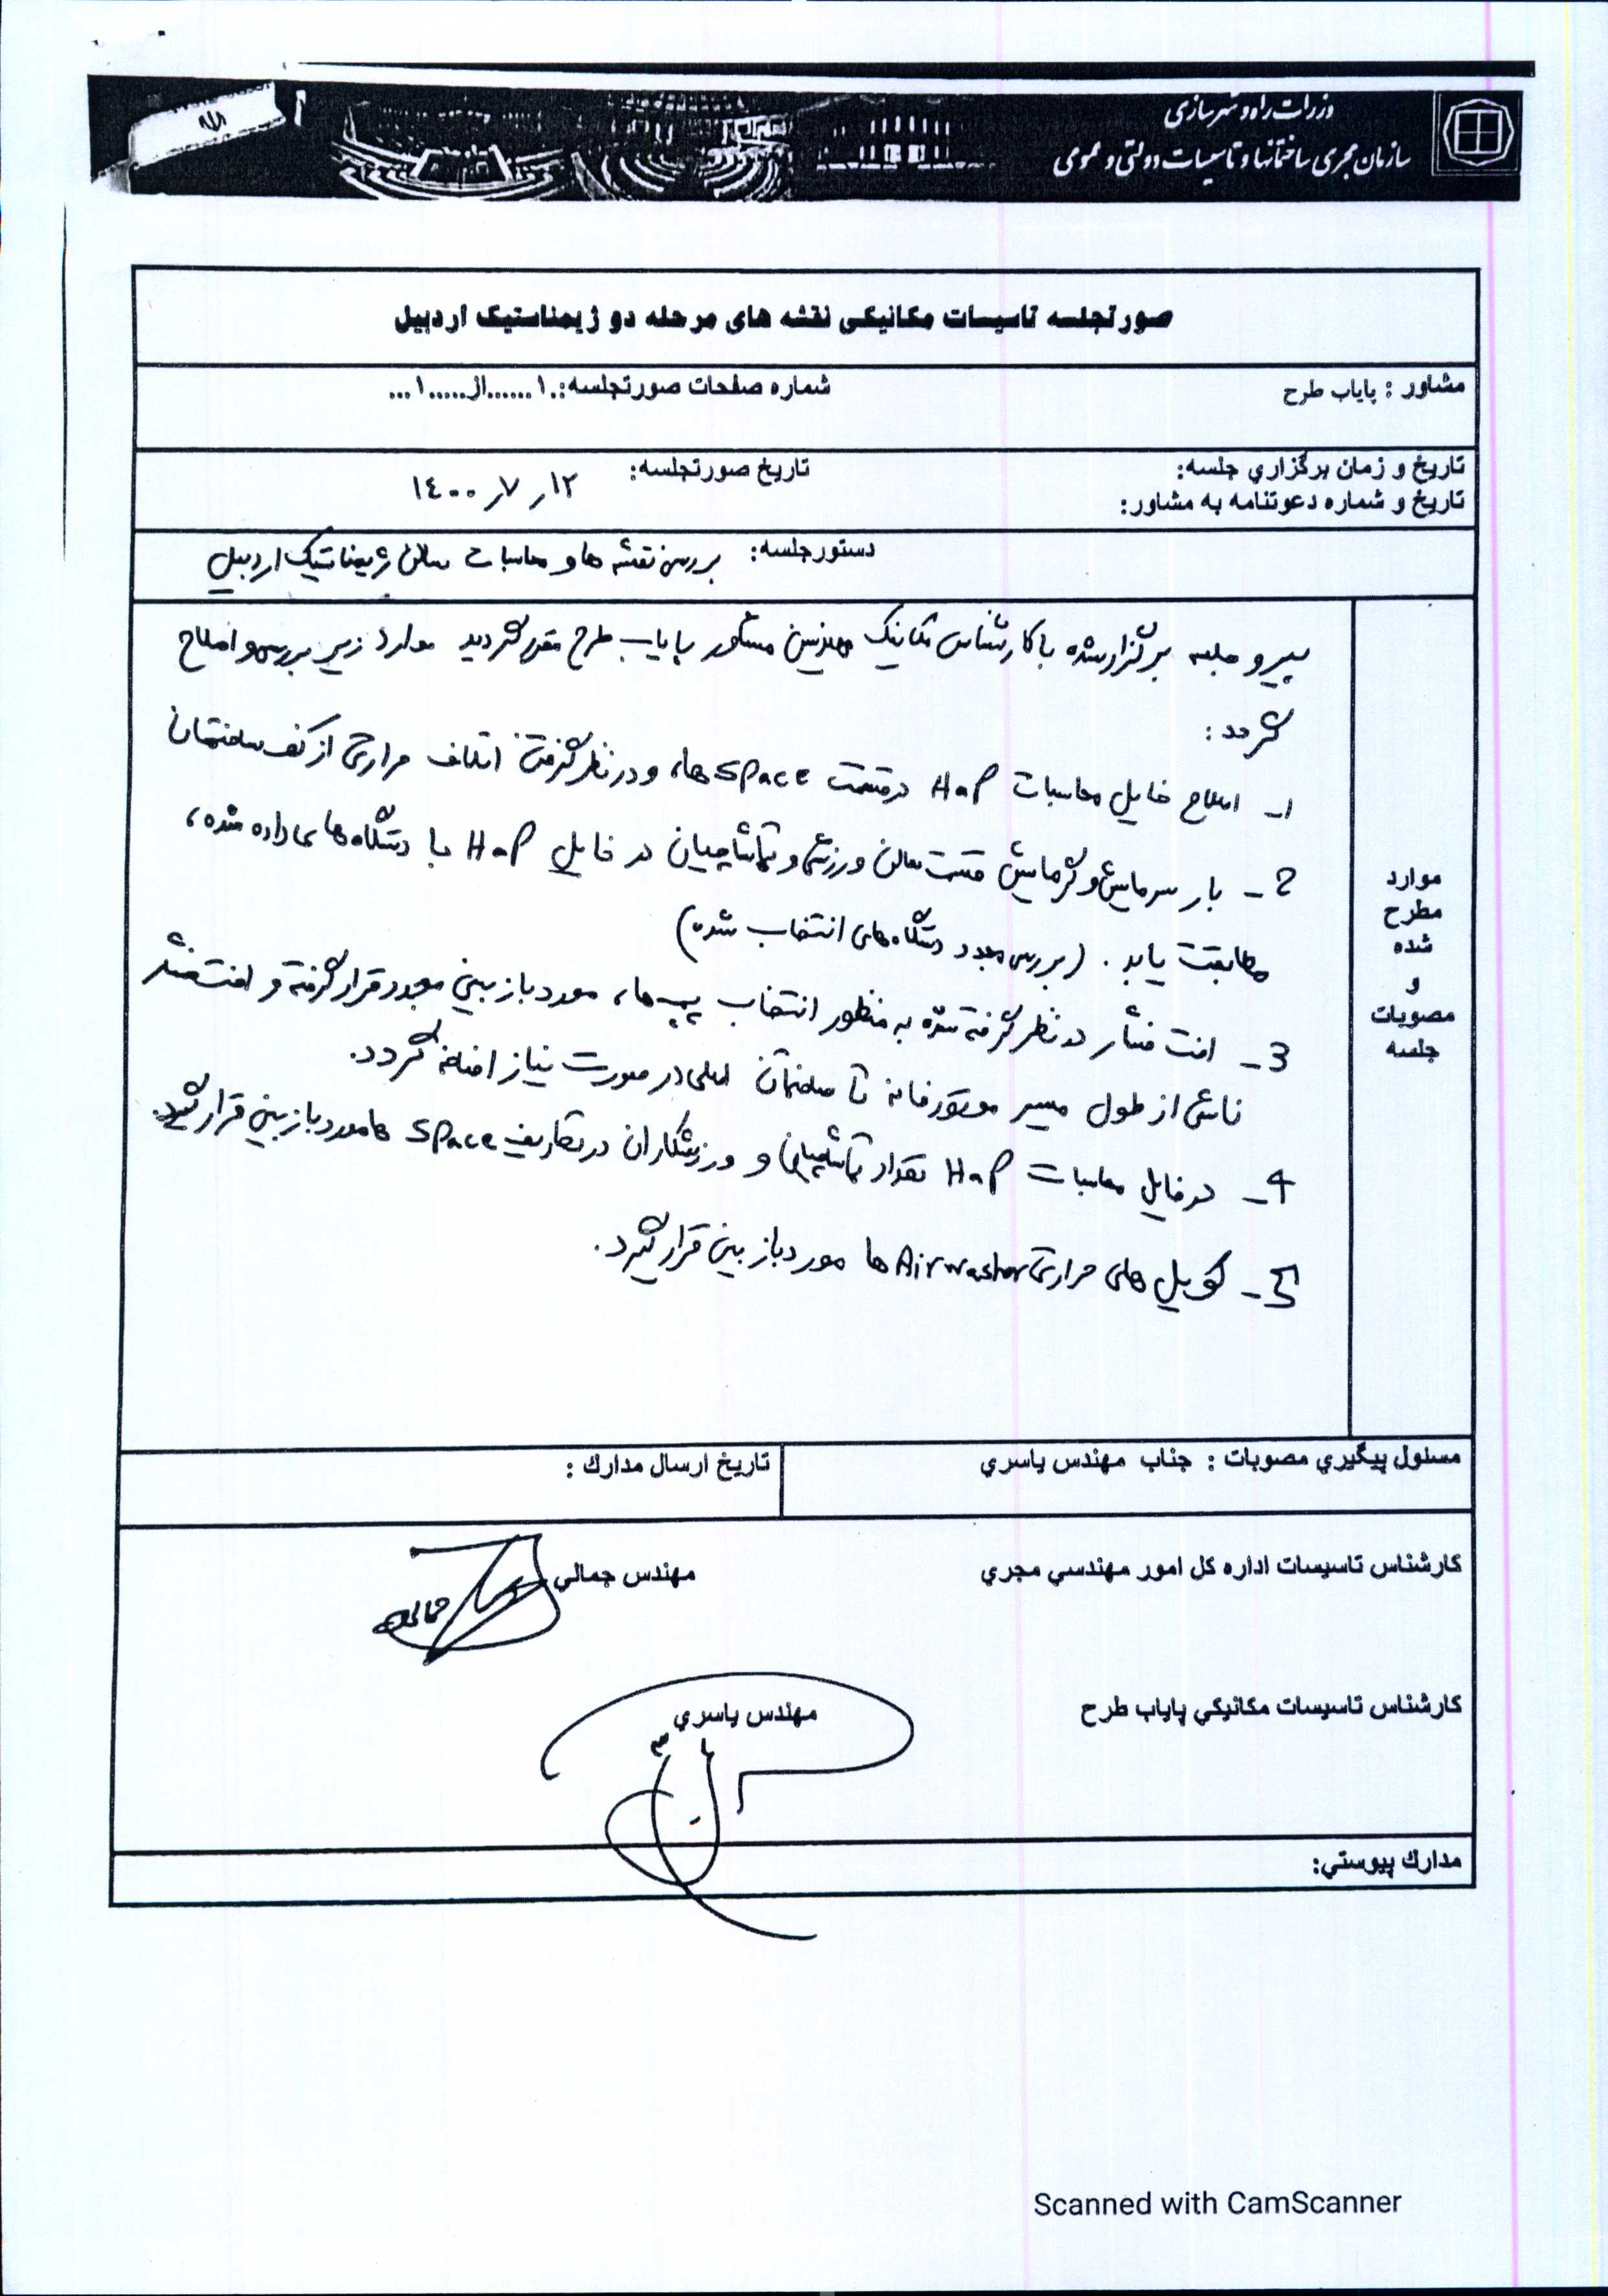 وزارت راه و شهرسازی
سازمان مجری ساختمانها و تاسیسات دولتی و عمومی
صورتجلسه تاسیسات مکانیکی نقشه های مرحله دو ژیمناستیک اردبیل
مشاور : پایاب طرح
شماره صفحات صورتجلسه:.۱......از.....۱...
تاریخ و زمان برگزاري جلسه:
تاریخ صورتجلسه: ۱۲ر ۷ر ۱۴۰۰
تاریخ و شماره دعوتنامه به مشاور:
دستورجلسه: بررسی نقشه ها و محاسبات سالن ژیمناستیک اردبیل
موارد
مطرح
شده
و
مصوبات
جلسه
پیرو جلسه برگزارشده با کارشناس مکانیک مهندسین مشاور پایاب طرح مقرر گردید موارد زیر بررسی و اصلاح
گردد :
1- اصلاح فایل محاسبات HaP در قسمت space ها، و در نظر گرفتن اتلاف حرارتی از کف ساختمان
2- بار سرمایش و گرمایش قسمت سالن ورزشی و تماشاچیان در فایل HaP با دستگاه های داده شده،
مطابقت یابد. (بررسی مجدد دستگاه های انتخاب شده)
3- افت فشار در نظر گرفته شده به منظور انتخاب پمپ ها، مورد بازبینی مجدد قرار گرفته و افت فشار
ناشی از طول مسیر موتورخانه تا ساختمان اصلی در صورت نیاز اضافه گردد.
4- در فایل محاسبات HaP تعداد تماشاچیان و ورزشکاران در تعاریف space ها مورد بازبینی قرار گیرد.
5- کویل های حرارتی Airwasher ها مورد بازبینی قرار گیرد.
مسئول پیگیري مصوبات : جناب مهندس یاسري
تاریخ ارسال مدارك :
کارشناس تاسیسات اداره کل امور مهندسي مجري
مهندس جمالي
جمالی
کارشناس تاسیسات مکانیکي پایاب طرح
مهندس یاسري
مدارك پیوستي:
Scanned with CamScanner